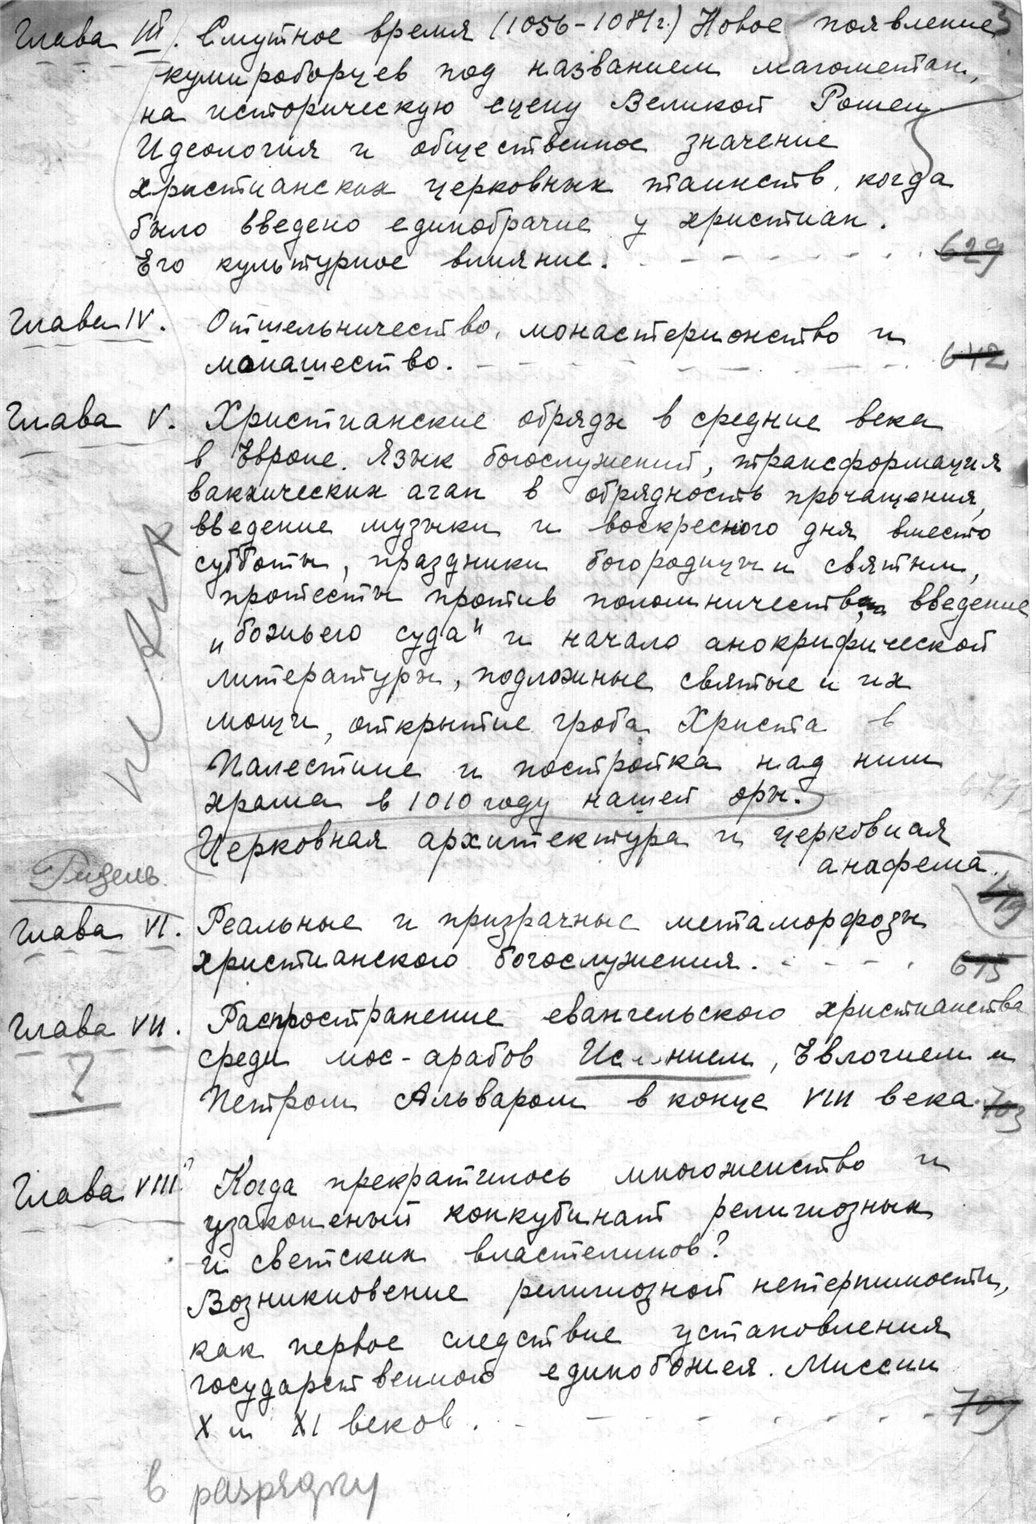 Глава III. Смутное время (1056-1081г.) Новое появление
кумироборцев под названием магометан,
на историческую сцену Великой Ромеи
Идеология и общественное значение
христианских церковных таинств, когда
было введено единобрачие у христиан.
Его культурное влияние. 629
Глава IV. Отшельничество, монастерионство и
монашество. 642
Глава V. Христианские обряды в средние века
в Европе. Язык богослужений, трансформация
вакхических агап в обрядность прочащения,
введение музыки и воскресного дня вместо
субботы, праздники богородицы и святым,
протесты против поломничества, введение
"божьего суда" и начало апокрифической
литературы, подложные святые и их
мощи, открытие гроба Христа в
Палестине и постройка над ним
храма в 1010 году нашей эры.
Церковная архитектура и церковная
анафема.
Глава VI. Реальные и призрачные метаморфозы
христианского богослужения. 615
Глава VII. Распространение евангельского христианства
?
среди мос-арабов, Евлогием и
Петром Альваром в конце VIII века. 703
Глава VIII. Когда прекратилось многоженство и
узаконеный конкубинат религиозных
и светских властелинов?
Возникновение религиозной нетерпимости,
как первое следствие установления
государственного единобожия. Миссии
X и XI веков. 709
в разрядку